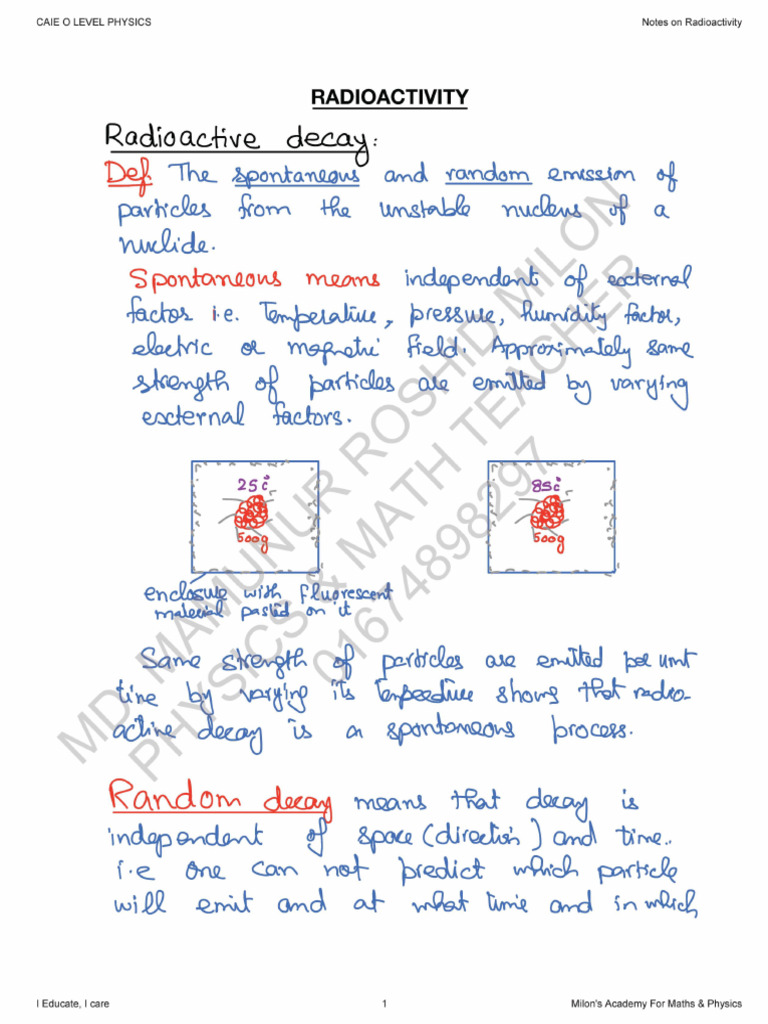 CAIE O LEVEL PHYSICS
Notes on Radioactivity
RADIOACTIVITY
Radioactive decay:
Def. The spontaneous and random emission of
particles from the unstable nucleus of a
nuclide.
Spontaneous means independent of external
factors i.e. Temperature, pressure, humidity factor,
electric or magnetic field. Approximately same
strength of particles are emitted by varying
external factors.
25c°
85c°
500g
500g
enclosure with fluorescent
material pasted on it
Same strength of particles are emitted per unit
time by varying its Temperature shows that radio-
active decay is a spontaneous process.
Random decay means that decay is
independent of space (direction) and time..
i.e one can not predict which particle
will emit and at what time and in which
MD. MAMUNUR ROSHID MILON
PHYSICS & MATH TEACHER
01674898297
I Educate, I care
1
Milon's Academy For Maths & Physics